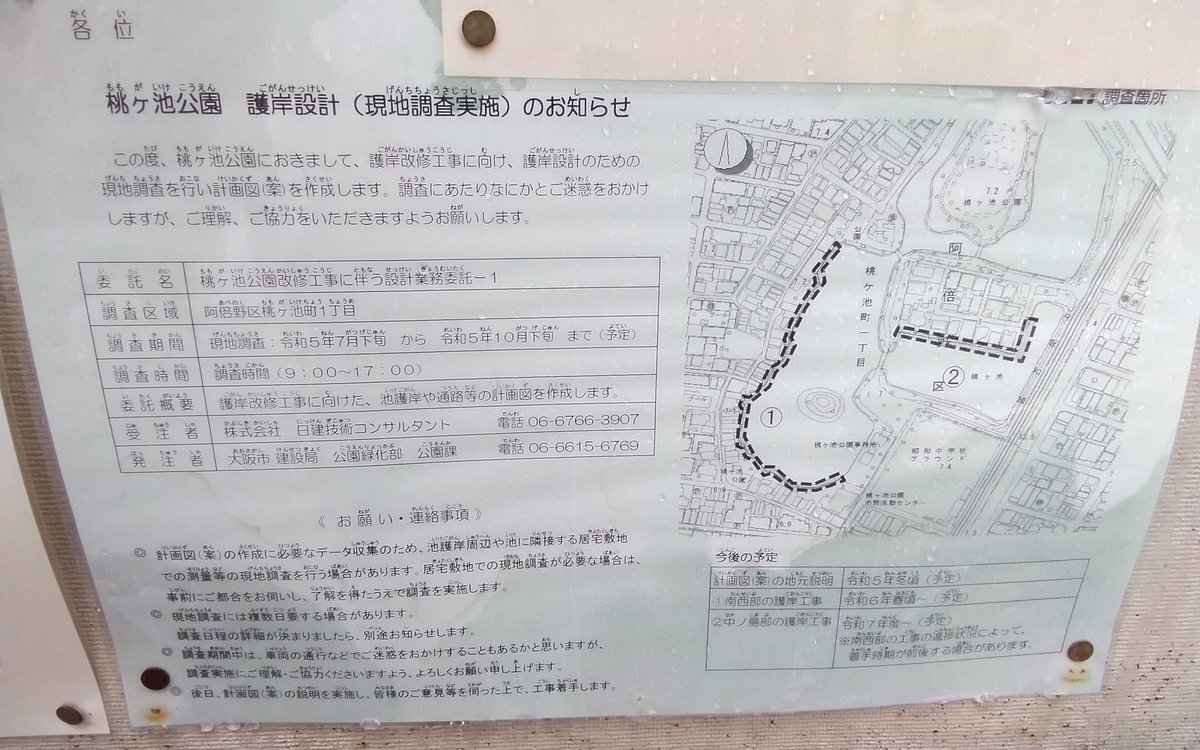 各位
桃ヶ池公園　護岸設計（現地調査実施）のお知らせ
この度、桃ヶ池公園におきまして、護岸改修工事に向け、護岸設計のための
現地調査を行い計画図(案)を作成します。調査にあたりなにかとご迷惑をおかけ
しますが、ご理解、ご協力をいただきますようお願いします。
委託名　桃ヶ池公園改修工事に伴う設計業務委託－1
調査区域　阿倍野区桃ヶ池町1丁目
調査期間　現地調査：令和5年7月下旬　から　令和5年10月下旬　まで（予定）
調査時間　調査時間（9：00～17：00）
委託概要　護岸改修工事に向けた、池護岸や通路等の計画図を作成します。
受注者　株式会社　日建技術コンサルタント　電話 06-6766-3907
発注者　大阪市 建設局　公園緑化部　公園課　電話 06-6615-6769
《 お願い・連絡事項 》
◎ 計画図(案)の作成に必要なデータ収集のため、池護岸周辺や池に隣接する居宅敷地
での測量等の現地調査を行う場合があります。居宅敷地での現地調査が必要な場合は、
事前にご都合をお伺いし、了解を得たうえで調査を実施します。
◎ 現地調査には複数日要する場合があります。
調査日程の詳細が決まりましたら、別途お知らせします。
◎ 調査期間中は、車両の通行などでご迷惑をおかけすることもあるかと思いますが、
調査実施にご理解・ご協力くださいますよう、よろしくお願い申し上げます。
◎ 後日、計画図(案)の説明を実施し、皆様のご意見等を伺った上で、工事着手します。
調査箇所
7.4
7.5
7.2
桃ヶ池公園
公園
阿
倍
区
桃ヶ池町一丁目
①
②
桃ヶ池
桃ヶ池公園事務所
昭和中学校
グラウンド
7.4
桃ヶ池公園
市民活動センター
今後の予定
計画図(案)の地元説明　令和5年冬頃（予定）
①南西部の護岸工事　令和6年春頃～（予定）
②中ノ島部の護岸工事　令和7年度～（予定）
※南西部の工事の進捗状況によって、
着手時期が前後する場合があります。